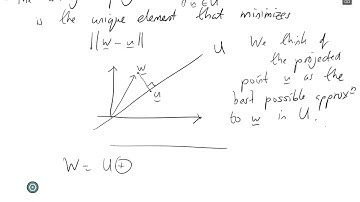 is the unique element that minimizes
||w - u||
U
We think of
the projected
point u as the
best possible approxn
to w in U.
w
u
W = U ⊕